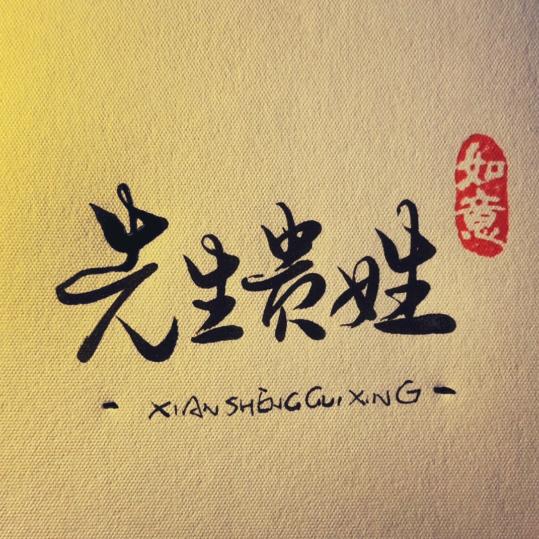 先生贵姓
如意
- XIAN SHÈNG GUI XING -